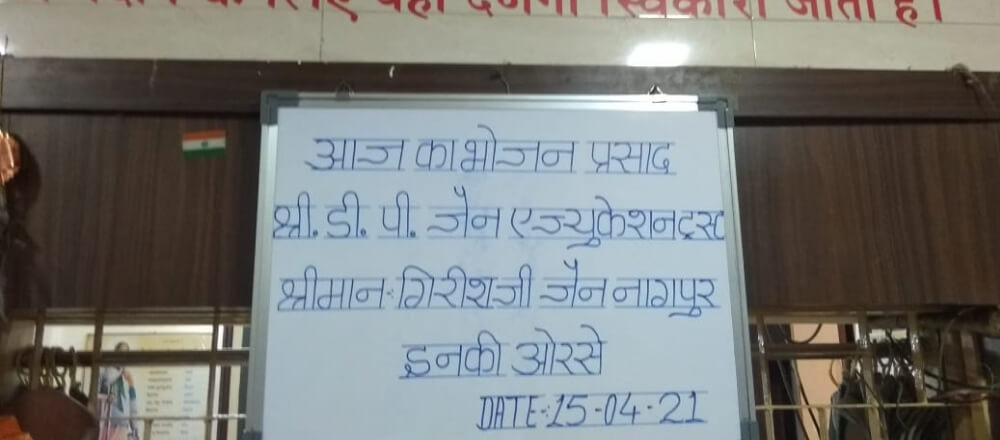 के लिए यहाँ देणगी स्विकारी जाती है।
आज का भोजन प्रसाद
श्री. डी. पी. जैन एज्युकेशन ट्रस्ट
श्रीमान: गिरीशजी जैन नागपुर
इनकी ओरसे
DATE:-15-04-21